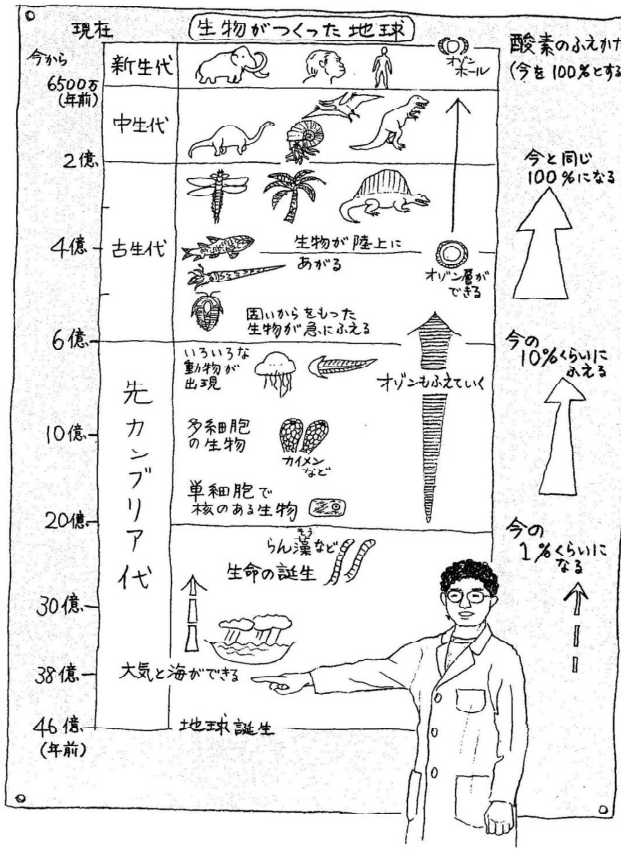 生物がつくった地球
現在
今から
6500万
(年前)
2億
4億
6億
10億
20億
30億
38億
46億
(年前)
新生代
中生代
古生代
先カンブリア代
オゾン
ホール
生物が陸上に
あがる
オゾン層が
できる
固いからをもった
生物が急にふえる
いろいろな
動物が
出現
オゾンもふえていく
多細胞
の生物
カイメン
など
単細胞で
核のある生物
そう
らん藻など
生命の誕生
大気と海ができる
地球誕生
酸素のふえかた
(今を100%とする
今と同じ
100%になる
今の
10%くらいに
ふえる
今の
1%くらいに
なる